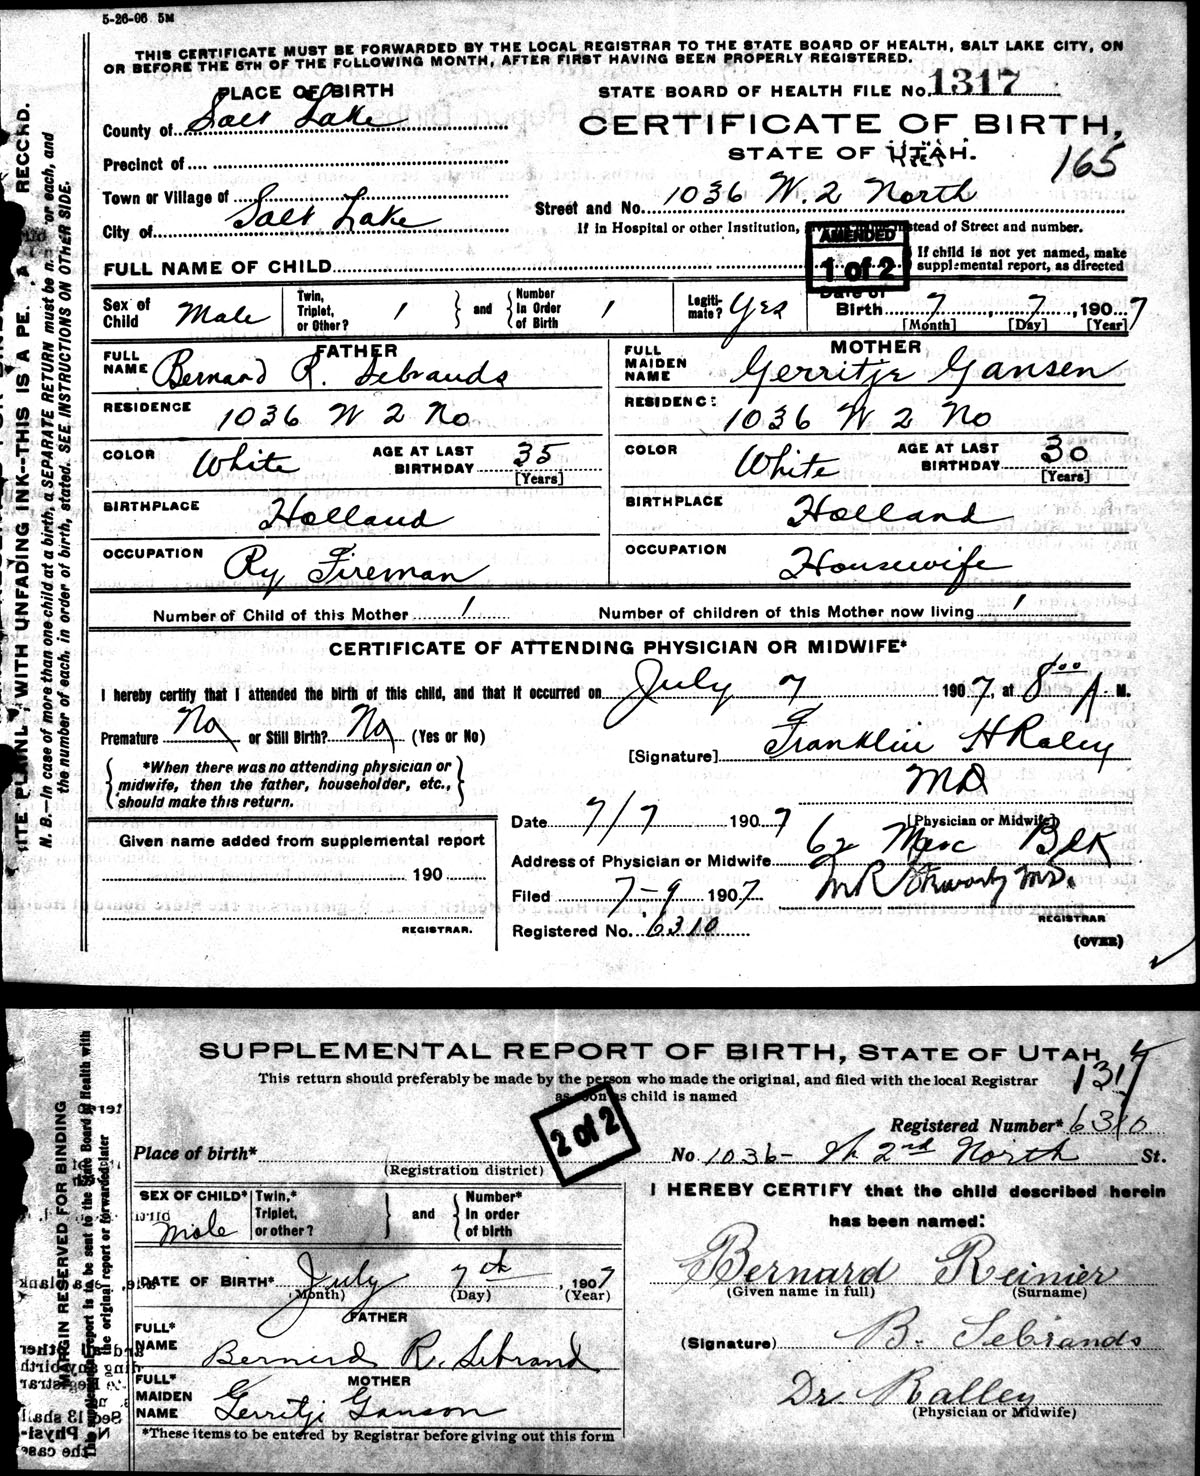 5-26-06 5M
THIS CERTIFICATE MUST BE FORWARDED BY THE LOCAL REGISTRAR TO THE STATE BOARD OF HEALTH, SALT LAKE CITY, ON
OR BEFORE THE 5TH OF THE FOLLOWING MONTH, AFTER FIRST HAVING BEEN PROPERLY REGISTERED.
PLACE OF BIRTH
STATE BOARD OF HEALTH FILE No. 1317
County of Salt Lake
CERTIFICATE OF BIRTH,
STATE OF UTAH.
165
Precinct of
Town or Village of
Street and No. 1036 W. 2 North
City of Salt Lake
If in Hospital or other Institution, instead of Street and number.
AMENDED
1 of 2
FULL NAME OF CHILD
If child is not yet named, make
supplemental report, as directed
Sex of Child Male
Twin, Triplet, or Other? 1 and Number In Order of Birth 1
Legitimate? Yes
Date of Birth 7, 7, 1907
[Month] [Day] [Year]
FATHER
FULL NAME Bernard R. Sebrands
RESIDENCE 1036 W 2 No
COLOR White AGE AT LAST BIRTHDAY 35 [Years]
BIRTHPLACE Holland
OCCUPATION Ry Fireman
MOTHER
FULL MAIDEN NAME Gerritje Gansen
RESIDENCE 1036 W 2 No
COLOR White AGE AT LAST BIRTHDAY 30 [Years]
BIRTHPLACE Holland
OCCUPATION Housewife
Number of Child of this Mother 1 Number of children of this Mother now living 1
CERTIFICATE OF ATTENDING PHYSICIAN OR MIDWIFE*
I hereby certify that I attended the birth of this child, and that it occurred on July 7 1907, at 8 00 A. M.
Premature No or Still Birth? No (Yes or No)
[Signature] Franklin H Raley
MD
[Physician or Midwife]
*When there was no attending physician or
midwife, then the father, householder, etc.,
should make this return.
Date 7/7 1907
Given name added from supplemental report
190
REGISTRAR.
Address of Physician or Midwife 62 Merc Blk
Filed 7-9 1907
REGISTRAR
Registered No. 6310
(OVER)
WITH UNFADING INK--THIS IS A PE A RECORD.
N. B.—In case of more than one child at a birth, a SEPARATE RETURN must be or each, and
the number of each, in order of birth, stated. SEE INSTRUCTIONS ON OTHER SIDE.
SUPPLEMENTAL REPORT OF BIRTH, STATE OF UTAH
This return should preferably be made by the person who made the original, and filed with the local Registrar
as soon as child is named
1317
2 of 2
Registered Number* 6310
Place of birth*
(Registration district)
No. 1036- W 2nd North St.
SEX OF CHILD* Male
Twin,* Triplet, or other? and Number* In order of birth
I HEREBY CERTIFY that the child described herein
has been named:
DATE OF BIRTH* July 7th, 1907
(Month) (Day) (Year)
Bernard Reinier
(Given name in full) (Surname)
FATHER
FULL* NAME Bernerd R. Sebrand
(Signature) B. Sebrands
MOTHER
FULL* MAIDEN NAME Gerritje Ganson
Dr. Ralley
(Physician or Midwife)
*These items to be entered by Registrar before giving out this form
MARGIN RESERVED FOR BINDING
This supplemental report is to be sent to the State Board of Health with
the original report or forwarded later